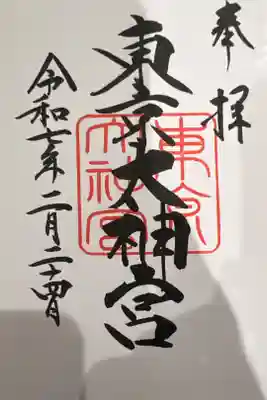 奉拝
東京大神宮
東京大神宮
令和七年二月二十四日